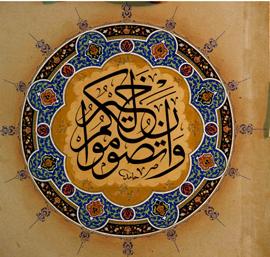 وان تصوموا خير لكم